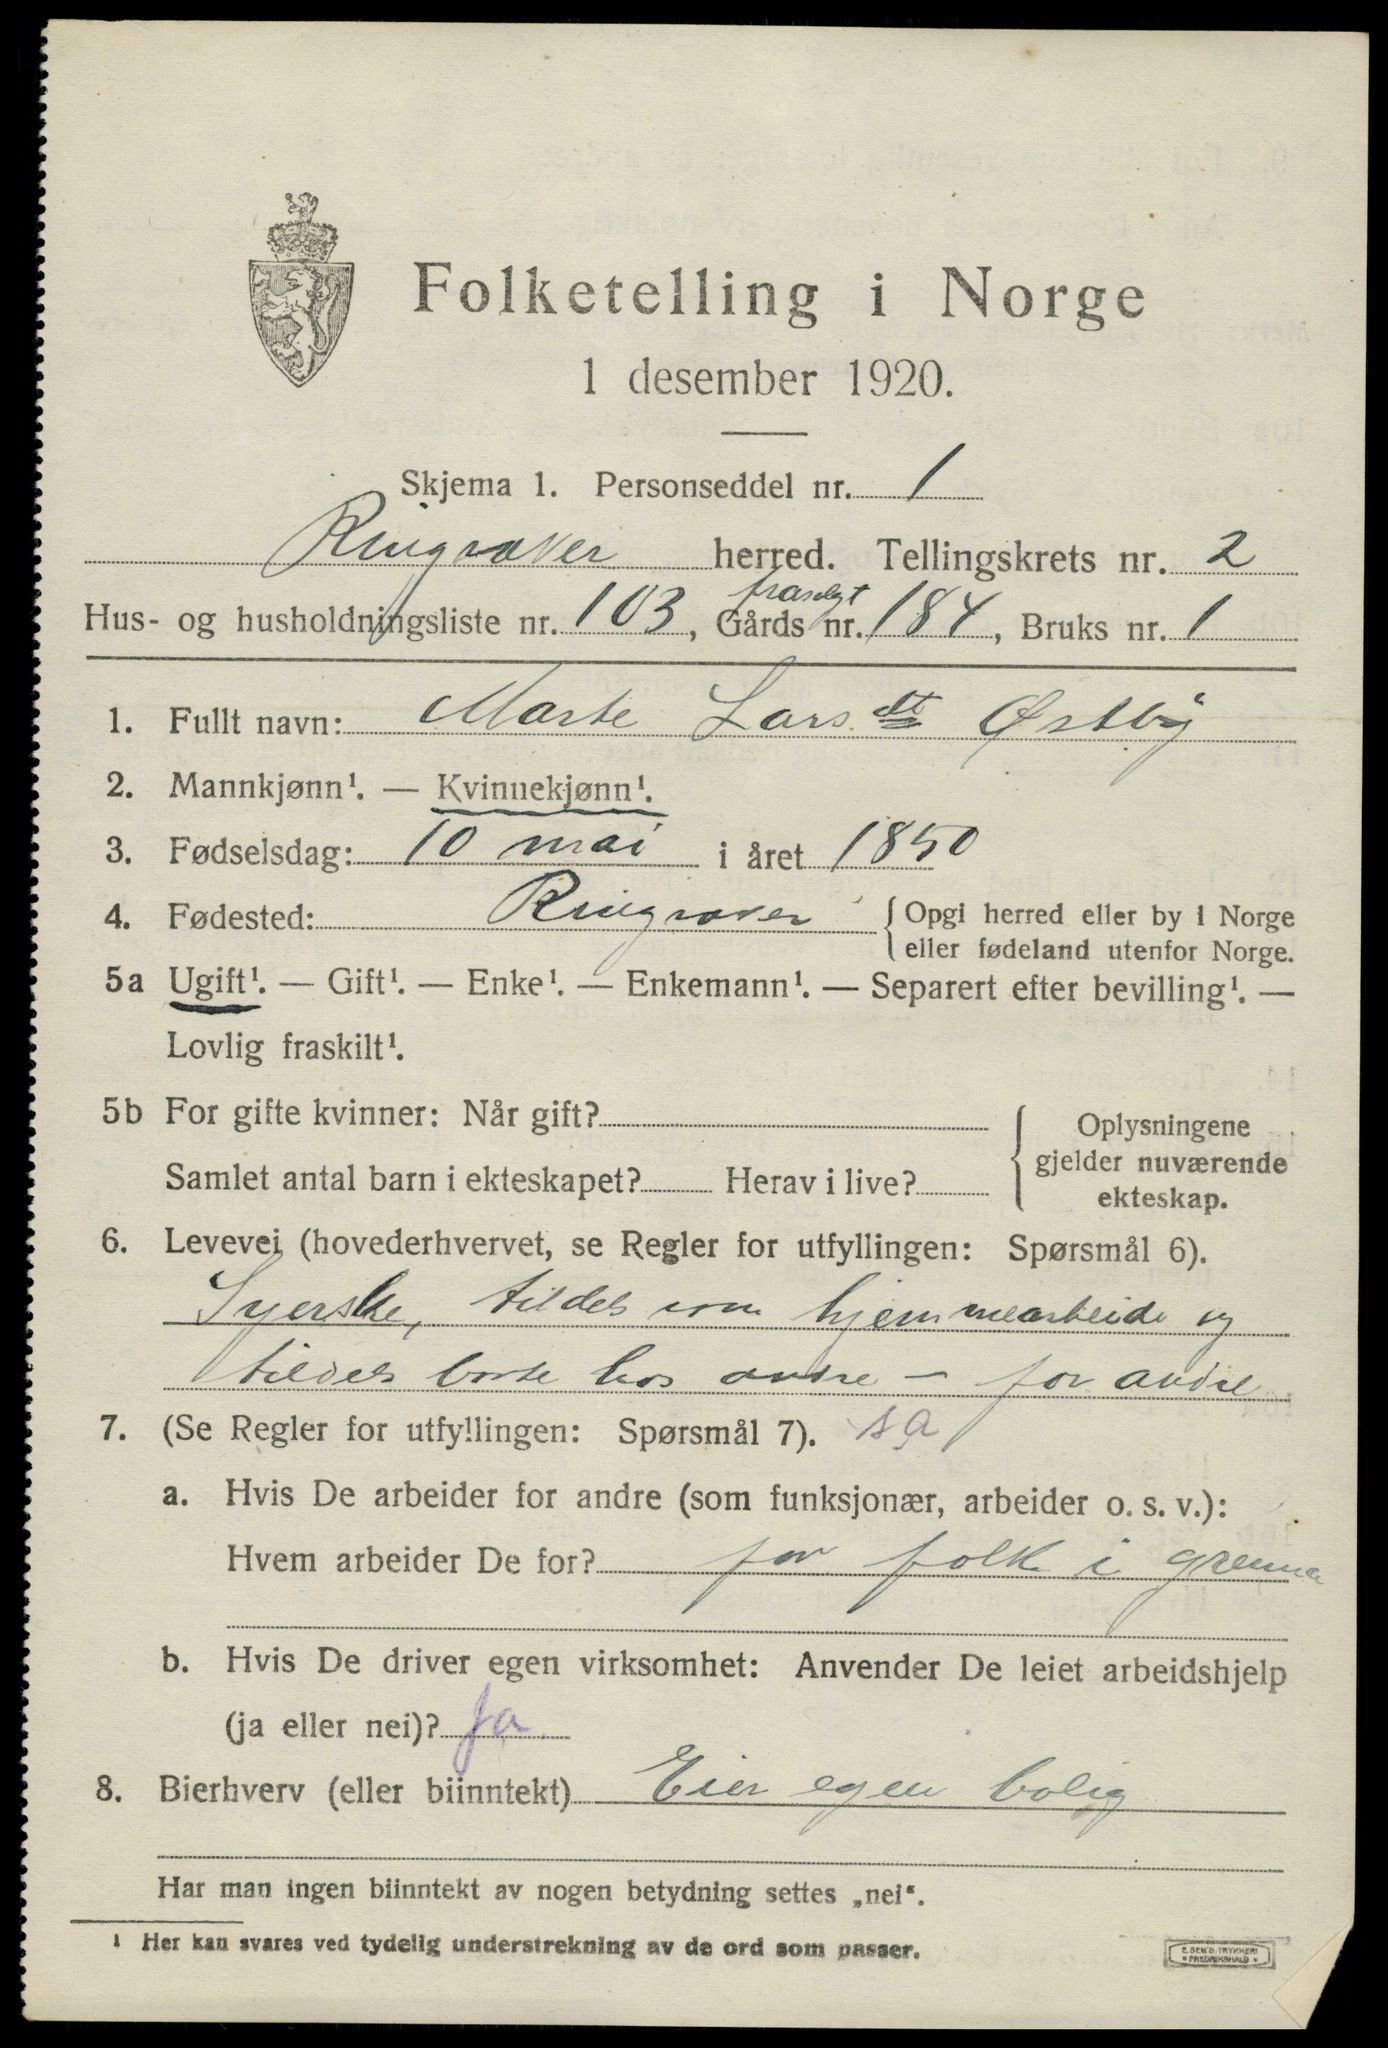 Folketelling i Norge
1 desember 1920.
Skjema 1. Personseddel nr. 1
Ringsaker herred. Tellingskrets nr. 2
frasolgt
Hus- og husholdningsliste nr. 103, Gårds nr. 184, Bruks nr. 1
1. Fullt navn: Marte Larsdt Østby
2. Mannkjønn¹. — Kvinnekjønn¹.
3. Fødselsdag: 10 mai i året 1850
4. Fødested: Ringsaker { Opgi herred eller by i Norge
eller fødeland utenfor Norge.
5a Ugift¹. — Gift¹. — Enke¹. — Enkemann¹. — Separert efter bevilling¹. —
Lovlig fraskilt¹.
5b For gifte kvinner: Når gift?
Samlet antal barn i ekteskapet? Herav i live?
Oplysningene
gjelder nuværende
ekteskap.
6. Levevei (hovederhvervet, se Regler for utfyllingen: Spørsmål 6).
Syerske, tildels som hjemmearbeide og
tildels borte hos andre – for andre
7. (Se Regler for utfyllingen: Spørsmål 7). sa
a. Hvis De arbeider for andre (som funksjonær, arbeider o. s. v.):
Hvem arbeider De for? for folk i grenna
b. Hvis De driver egen virksomhet: Anvender De leiet arbeidshjelp
(ja eller nei)? Ja
8. Bierhverv (eller biinntekt) Eier egen bolig
Har man ingen biinntekt av nogen betydning settes „nei“.
¹ Her kan svares ved tydelig understrekning av de ord som passer.
E. SEM'S TRYKKERI
FREDRIKSHALD